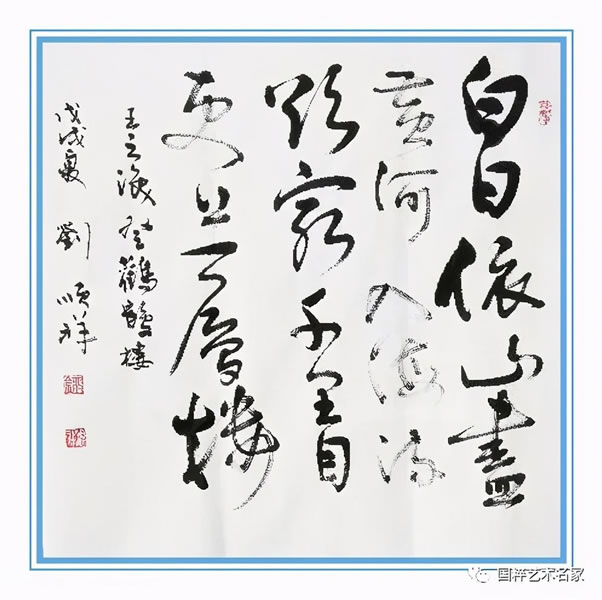 白日依山盡
黃河入海流
欲窮千里目
更上一層樓
王之渙登鸛鵲樓
戊戌夏 劉順祥
国粹艺术名家